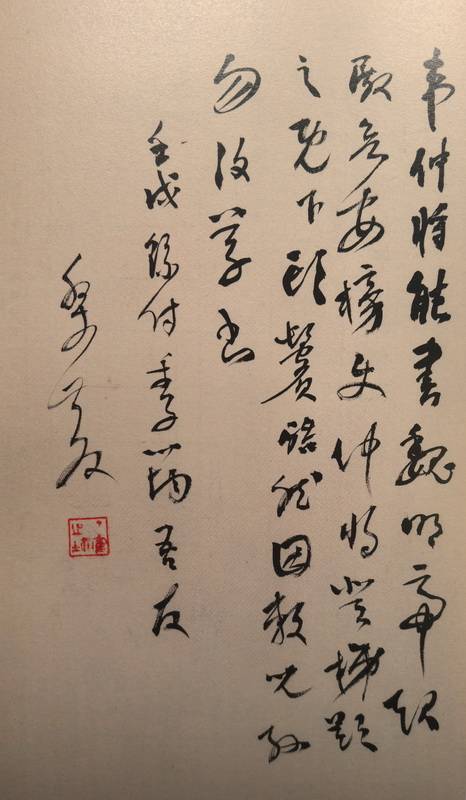 韦仲將能書魏明帝起
殿欲安榜使仲將登梯題
之既下頭鬢皓然因敕兒孫
勿復學書
壬戌録付季吾友